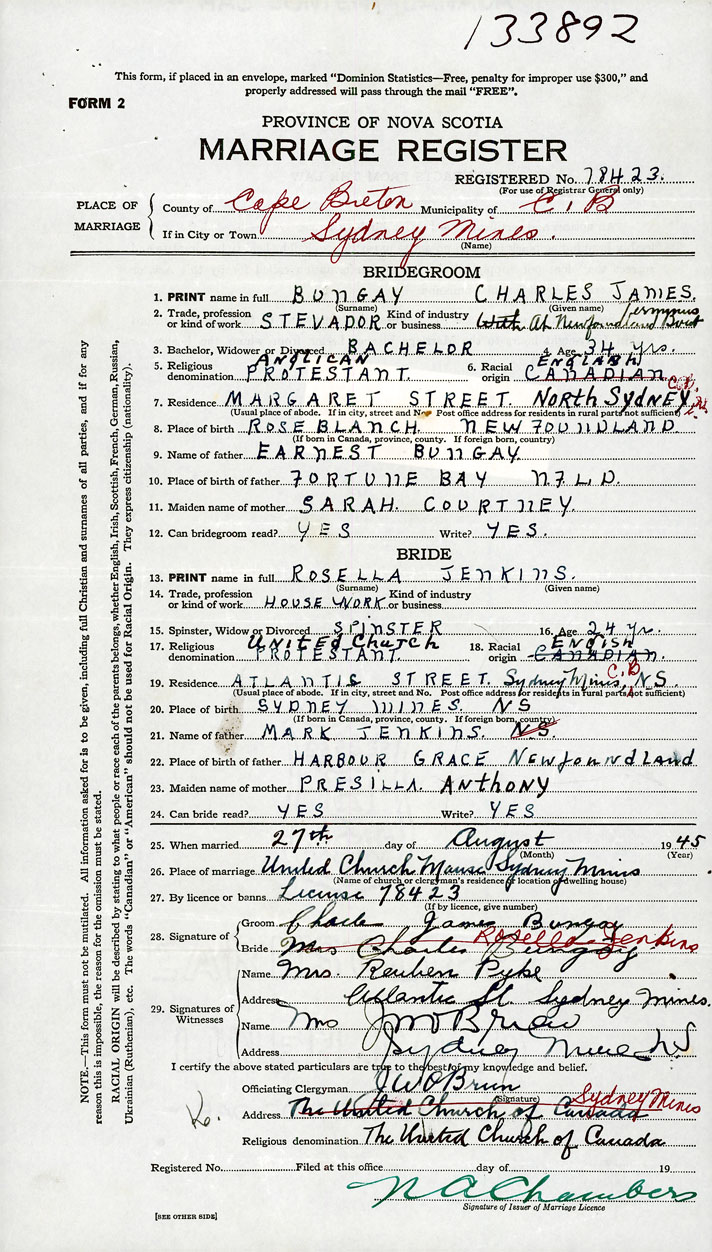 133892
This form, if placed in an envelope, marked "Dominion Statistics—Free, penalty for improper use $300," and
properly addressed will pass through the mail "FREE".
FORM 2
PROVINCE OF NOVA SCOTIA
MARRIAGE REGISTER
REGISTERED No. 78423.
(For use of Registrar General only)
PLACE OF MARRIAGE
County of Cape Breton Municipality of C. B
If in City or Town Sydney Mines.
(Name)
BRIDEGROOM
1. PRINT name in full BUNGAY CHARLES JAMES.
(Surname) (Given name)
2. Trade, profession or kind of work STEVADOR Kind of industry or business With At Newfoundland Boat
3. Bachelor, Widower or Divorced BACHELOR 4. Age 34 yrs.
5. Religious denomination ANGLICAN PROTESTANT. 6. Racial origin ENGLISH CANADIAN
7. Residence MARGARET STREET. NORTH SYDNEY. C.B.
(Usual place of abode. If in city, street and No. Post office address for residents in rural parts not sufficient)
8. Place of birth ROSE BLANCH NEWFOUNDLAND.
(If born in Canada, province, county. If foreign born, country)
9. Name of father EARNEST BUNGAY
10. Place of birth of father FORTUNE BAY NFLD.
11. Maiden name of mother SARAH COURTNEY.
12. Can bridegroom read? YES Write? YES.
BRIDE
13. PRINT name in full ROSELLA JENKINS.
(Surname) (Given name)
14. Trade, profession or kind of work HOUSE WORK Kind of industry or business
15. Spinster, Widow or Divorced SPINSTER 16. Age 24 yr.
17. Religious denomination UNITED CHURCH PROTESTANT 18. Racial origin ENGLISH CANADIAN.
19. Residence ATLANTIC STREET. Sydney Mines, C.B NS.
(Usual place of abode. If in city, street and No. Post office address for residents in rural parts not sufficient)
20. Place of birth SYDNEY MINES. NS
(If born in Canada, province, county. If foreign born, country)
21. Name of father MARK JENKINS. N.S.
22. Place of birth of father HARBOUR GRACE Newfoundland
23. Maiden name of mother PRESILLA. ANTHONY
24. Can bride read? YES Write? YES
25. When married 27th day of August 1945
(Month) (Year)
26. Place of marriage United Church Manse Sydney Mines
(Name of church or clergyman's residence or location of dwelling house)
27. By licence or banns License 78423
(If by licence, give number)
28. Signature of
Groom Charle James Bungay
Bride Mrs Charles Bungay Rosella Jenkins
29. Signatures of Witnesses
Name Mrs. Reuben Pyke
Address Atlantic St. Sydney Mines.
Name Mrs J W O'Brien
Address Sydney Mines NS
I certify the above stated particulars are true to the best of my knowledge and belief.
Officiating Clergyman J W O'Brien
(Signature)
Address The United Church of Canada Sydney Mines
Religious denomination The United Church of Canada
Registered No. Filed at this office day of 19
N A Chambers
Signature of Issuer of Marriage Licence
[SEE OTHER SIDE]
NOTE.—This form must not be mutilated. All information asked for is to be given, including full Christian and surnames of all parties, and if for any
reason this is impossible, the reason for the omission must be stated.
RACIAL ORIGIN will be described by stating to what people or race each of the parents belongs, whether English, Irish, Scottish, French, German, Russian,
Ukrainian (Ruthenian), etc. The words "Canadian" or "American" should not be used for Racial Origin. They express citizenship (nationality).